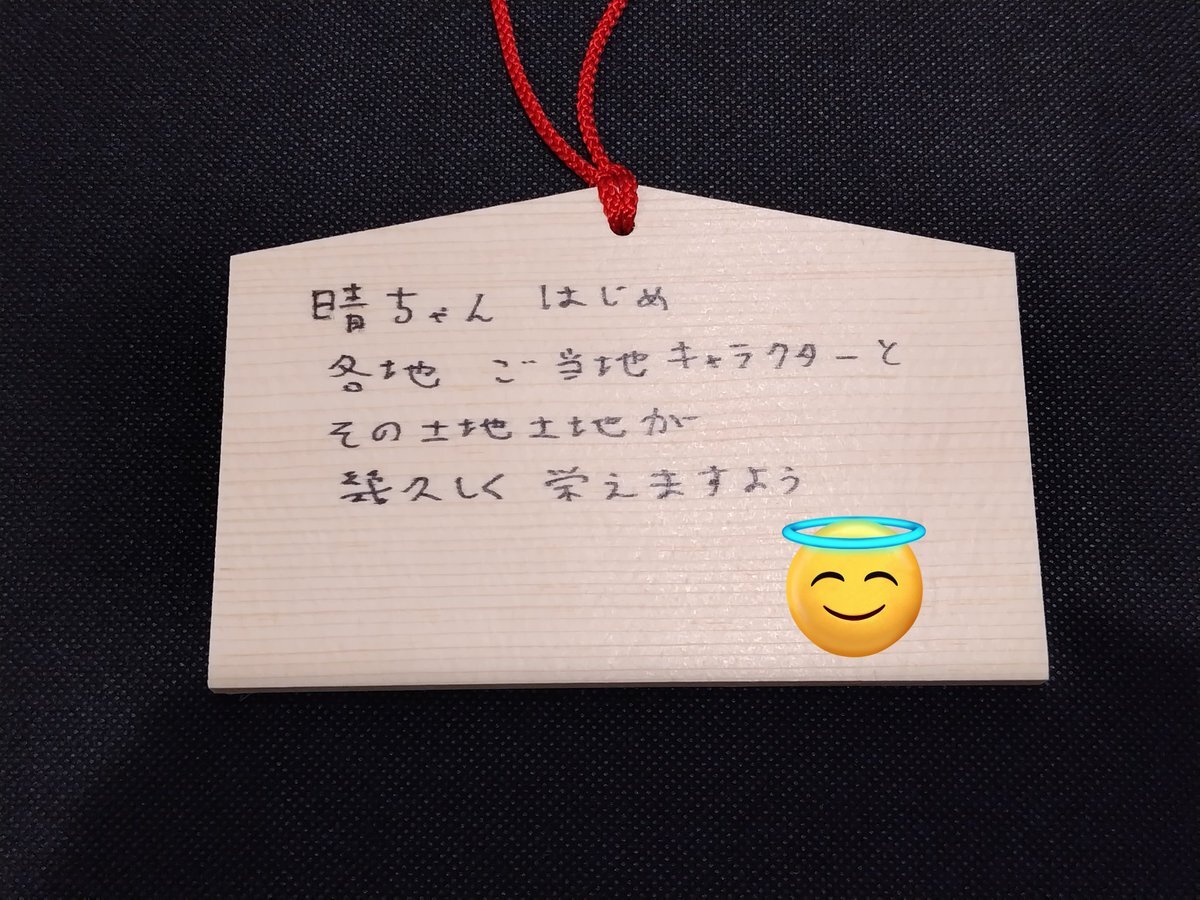 晴ちゃん はじめ
各地 ご当地キャラクターと
その土地土地が
幾久しく 栄えますよう